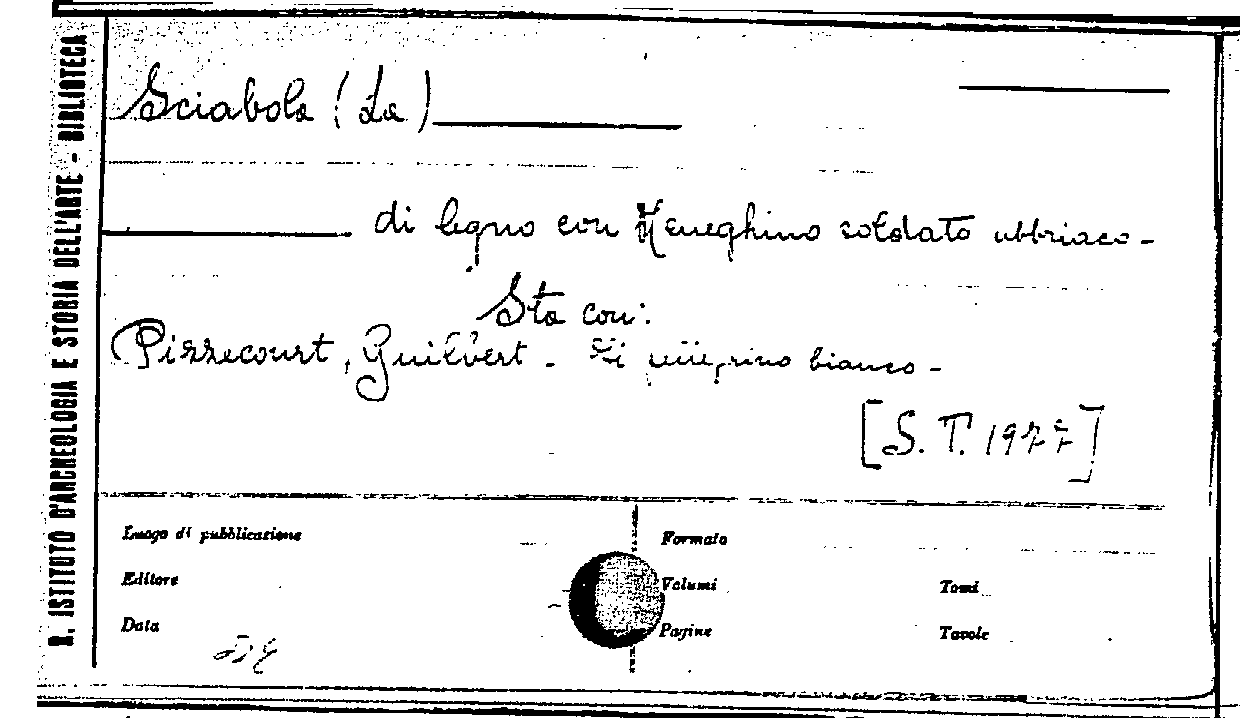 R. ISTITUTO D'ARCHEOLOGIA E STORIA DELL'ARTE - BIBLIOTECA
Sciabola (La)
di legno con Meneghino soldato ubbriaco -
Sta con:
Pizzecourt, Guilbert - Il bianco -
[S. T. 1977]
Luogo di pubblicazione
Formato
Editore
Volumi
Tomi
Data
Pagine
Tavole